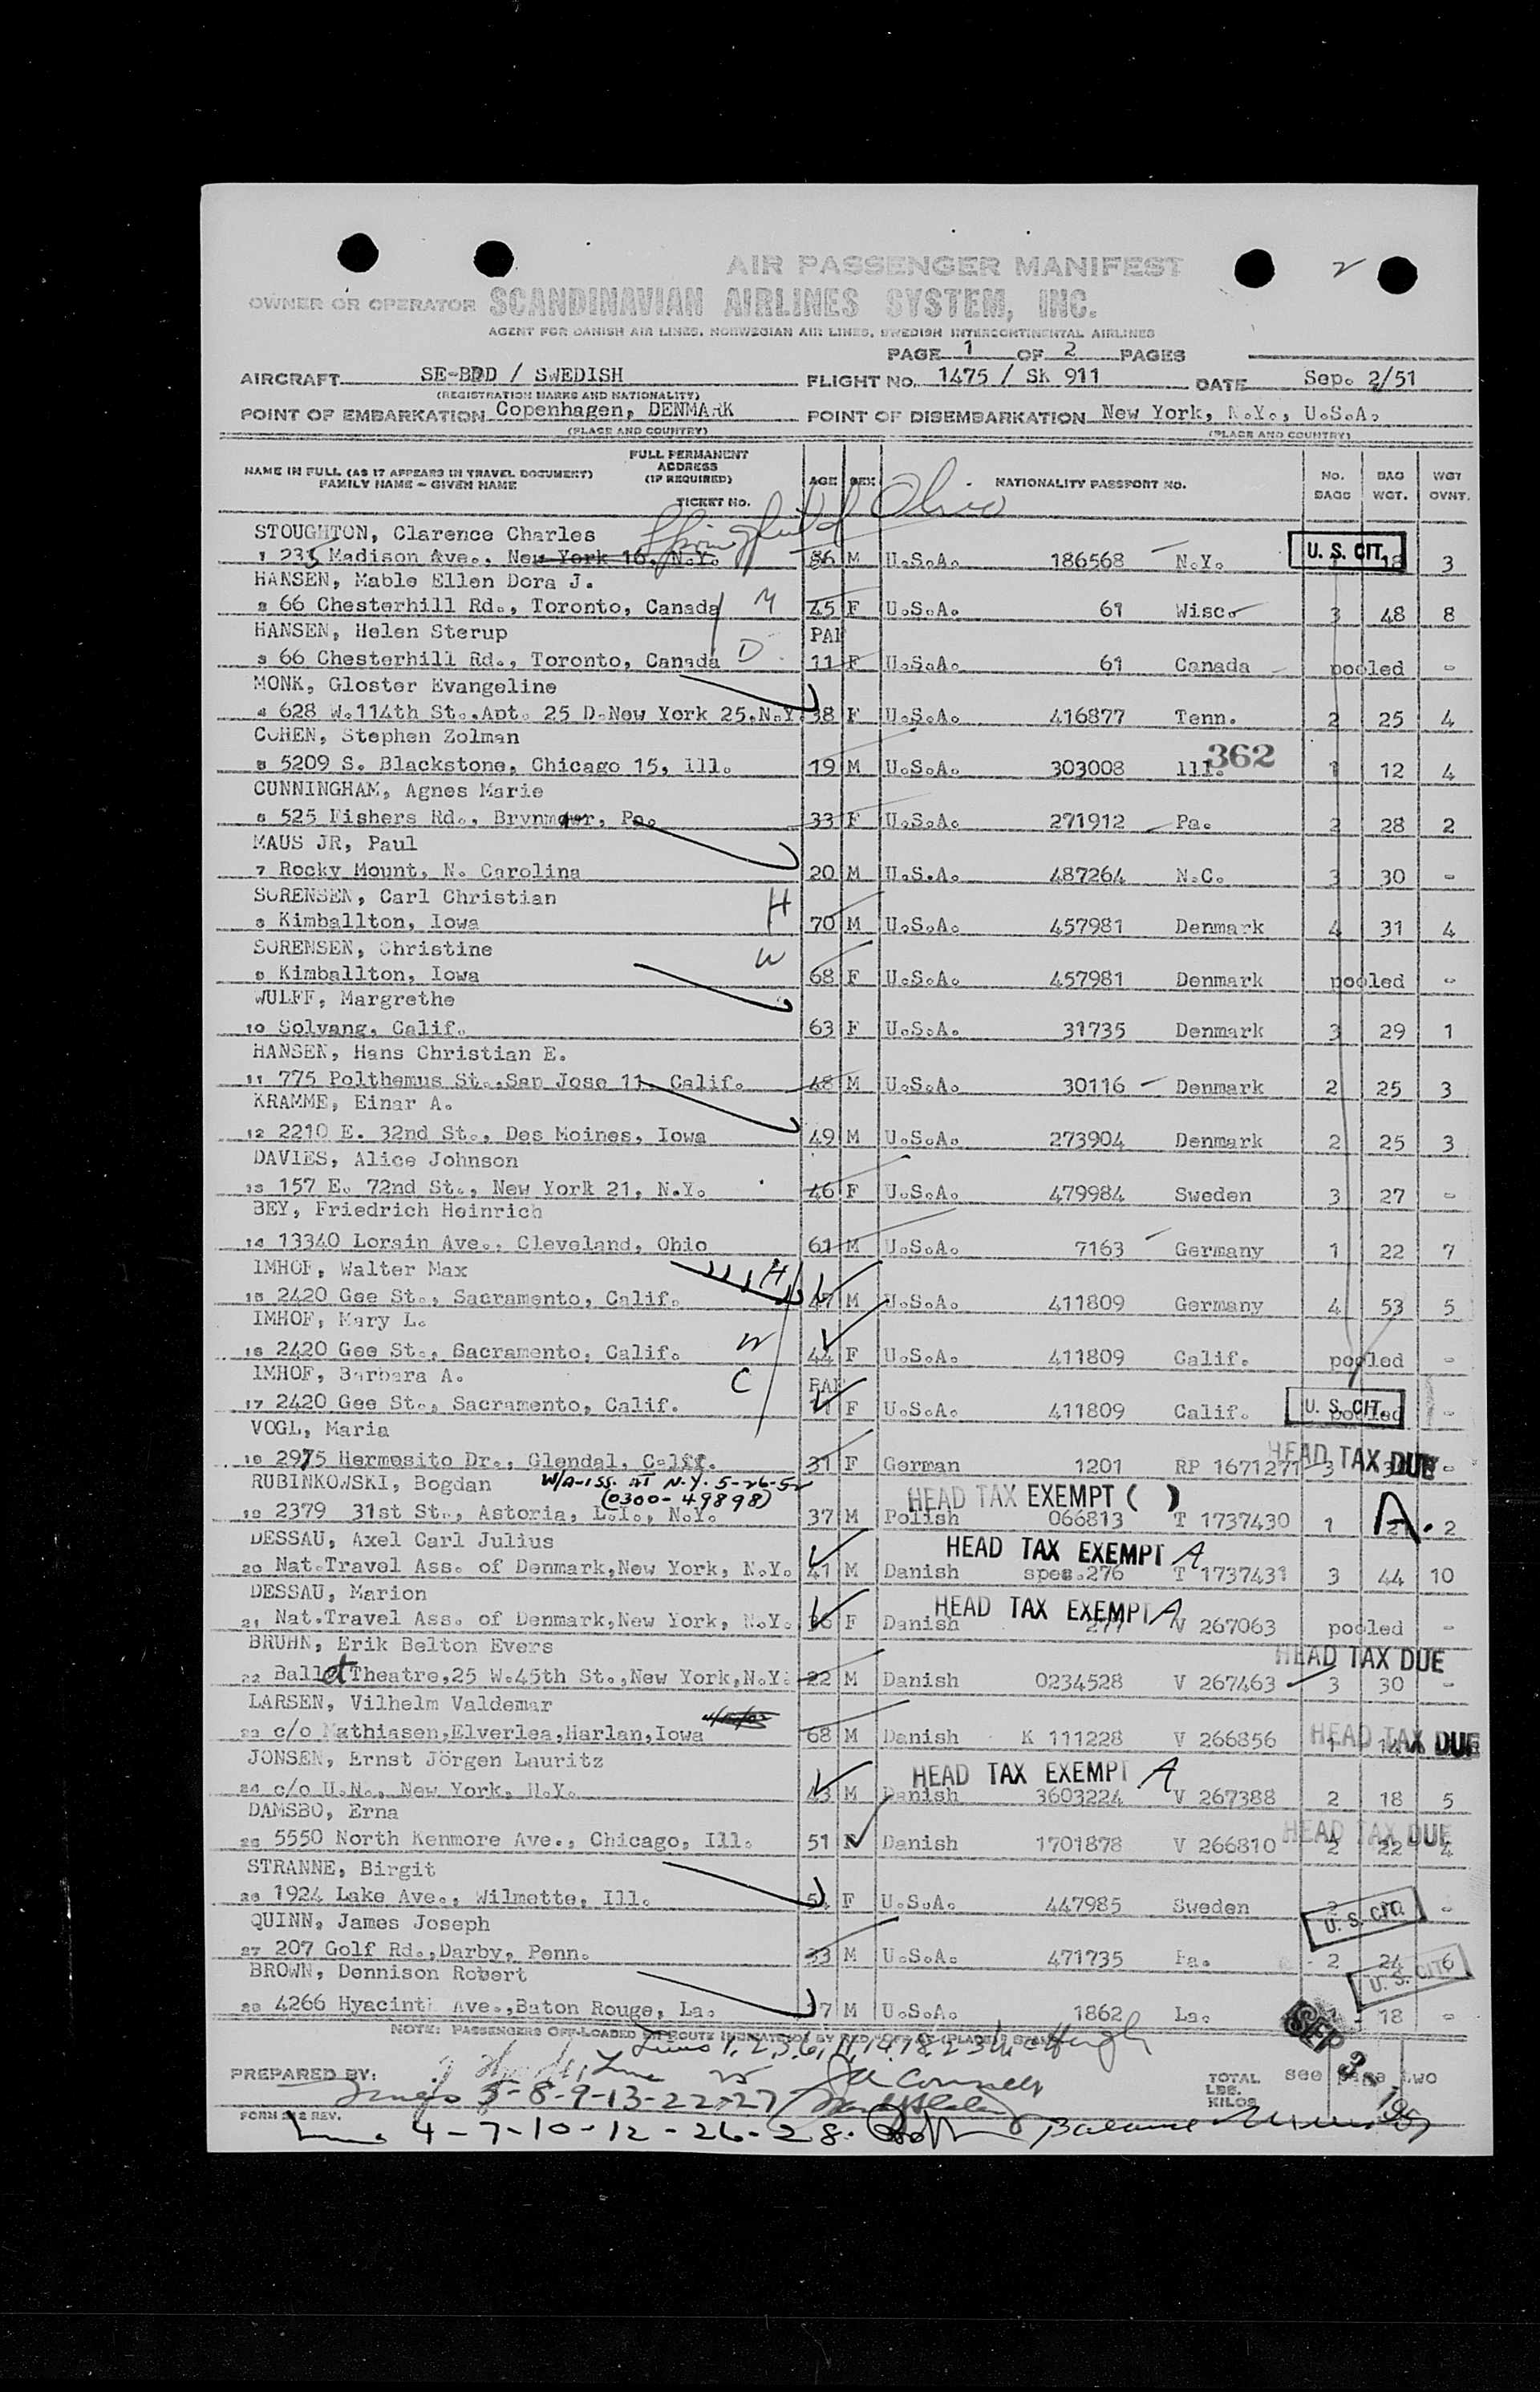 2
AIR PASSENGER MANIFEST
OWNER OR OPERATOR SCANDINAVIAN AIRLINES SYSTEM, INC.
AGENT FOR DANISH AIR LINES, NORWEGIAN AIR LINES, SWEDISH INTERCONTINENTAL AIRLINES
PAGE 1 OF 2 PAGES
AIRCRAFT SE-BDD / SWEDISH FLIGHT NO. 1475 / SK 911 DATE Sep. 2/51
(REGISTRATION MARKS AND NATIONALITY)
POINT OF EMBARKATION Copenhagen, DENMARK POINT OF DISEMBARKATION New York, N.Y., U.S.A.
(PLACE AND COUNTRY) (PLACE AND COUNTRY)
NAME IN FULL (AS IT APPEARS IN TRAVEL DOCUMENT) FAMILY NAME - GIVEN NAME FULL PERMANENT ADDRESS (IF REQUIRED) TICKET NO. AGE SEX NATIONALITY PASSPORT NO. No. BAGS BAG WGT. WGT OVNT.
Springfield Ohio
STOUGHTON, Clarence Charles
1 235 Madison Ave., New York 16, N.Y. 56 M U.S.A. 186568 N.Y. U. S. CIT. 18 3
HANSEN, Mable Ellen Dora J.
2 66 Chesterhill Rd., Toronto, Canada M 45 F U.S.A. 61 Wisc. 3 48 8
HANSEN, Helen Sterup
3 66 Chesterhill Rd., Toronto, Canada D 11 F U.S.A. 61 Canada pooled -
MONK, Gloster Evangeline
4 628 W.114th St.,Apt. 25 D.New York 25,N.Y. 38 F U.S.A. 416877 Tenn. 2 25 4
COHEN, Stephen Zolman
5 5209 S. Blackstone, Chicago 15, Ill. 19 M U.S.A. 303008 Ill. 362 1 12 4
CUNNINGHAM, Agnes Marie
6 525 Fishers Rd., Brynmawr, Pa. 33 F U.S.A. 271912 Pa. 2 28 2
MAUS JR, Paul
7 Rocky Mount, N. Carolina 20 M U.S.A. 487264 N.C. 3 30 -
SORENSEN, Carl Christian
8 Kimballton, Iowa H 70 M U.S.A. 457981 Denmark 4 31 4
SORENSEN, Christine
9 Kimballton, Iowa W 68 F U.S.A. 457981 Denmark pooled -
WULFF, Margrethe
10 Solvang, Calif. 63 F U.S.A. 31735 Denmark 3 29 1
HANSEN, Hans Christian E.
11 775 Polthemus St.,San Jose 11, Calif. 48 M U.S.A. 30116 Denmark 2 25 3
KRAMME, Einar A.
12 2210 E. 32nd St., Des Moines, Iowa 49 M U.S.A. 273904 Denmark 2 25 3
DAVIES, Alice Johnson
13 157 E. 72nd St., New York 21, N.Y. 46 F U.S.A. 479984 Sweden 3 27 -
BEY, Friedrich Heinrich
14 13340 Lorain Ave., Cleveland, Ohio 61 M U.S.A. 7163 Germany 1 22 7
IMHOF, Walter Max
15 2420 Gee St., Sacramento, Calif. H 47 M U.S.A. 411809 Germany 4 53 5
IMHOF, Mary L.
16 2420 Gee St., Sacramento, Calif. W 44 F U.S.A. 411809 Calif. pooled -
IMHOF, Barbara A.
17 2420 Gee St., Sacramento, Calif. C F U.S.A. 411809 Calif. U. S. CIT. pooled -
VOGL, Maria
18 2975 Hermosito Dr., Glendal, Calif. 31 F German 1201 RP 1671271 3 HEAD TAX DUE -
RUBINKOWSKI, Bogdan W/A-ISS. AT N.Y. 5-26-52
(0300-49898) HEAD TAX EXEMPT ( )
19 2379 31st St., Astoria, L.I., N.Y. 37 M Polish 066813 T 1737430 1 21 A. 2
DESSAU, Axel Carl Julius HEAD TAX EXEMPT A
20 Nat.Travel Ass. of Denmark,New York, N.Y. 41 M Danish spes.276 T 1737431 3 44 10
DESSAU, Marion HEAD TAX EXEMPT A
21 Nat.Travel Ass. of Denmark,New York, N.Y. F Danish 277 V 267063 pooled -
BRUHN, Erik Belton Evers HEAD TAX DUE
22 Ballet Theatre,25 W.45th St.,New York,N.Y. 22 M Danish 0234528 V 267463 3 30 -
LARSEN, Vilhelm Valdemar
23 c/o Mathiasen,Elverlea,Harlan,Iowa 68 M Danish K 111228 V 266856 1 HEAD TAX DUE
JONSEN, Ernst Jörgen Lauritz HEAD TAX EXEMPT A
24 c/o U.N., New York, N.Y. 43 M Danish 3603224 V 267388 2 18 5
DAMSBO, Erna
25 5550 North Kenmore Ave., Chicago, Ill. 51 F Danish 1701878 V 266810 HEAD TAX DUE 2 22 4
STRANNE, Birgit
26 1924 Lake Ave., Wilmette, Ill. 54 F U.S.A. 447985 Sweden 2 U. S. CIT. -
QUINN, James Joseph
27 207 Golf Rd.,Darby, Penn. 33 M U.S.A. 471735 Pa. 2 24 6
BROWN, Dennison Robert U. S. CIT.
28 4266 Hyacinth Ave.,Baton Rouge, La. 17 M U.S.A. 1862 La. 18 -
NOTE: PASSENGERS OFF-LOADED EN ROUTE INDICATED BY RED "OFF AT (PLACE)" STAMP
SEP 3 - 195
Lines 1, 2, 3, 6, 11, 14, 18, 23 McHugh
PREPARED BY: Line 25 TOTAL LBS. KILOS see page two
Lines 5-8-9-13-22-27
FORM 212 REV.
Lines 4-7-10-12-26-28. Balance